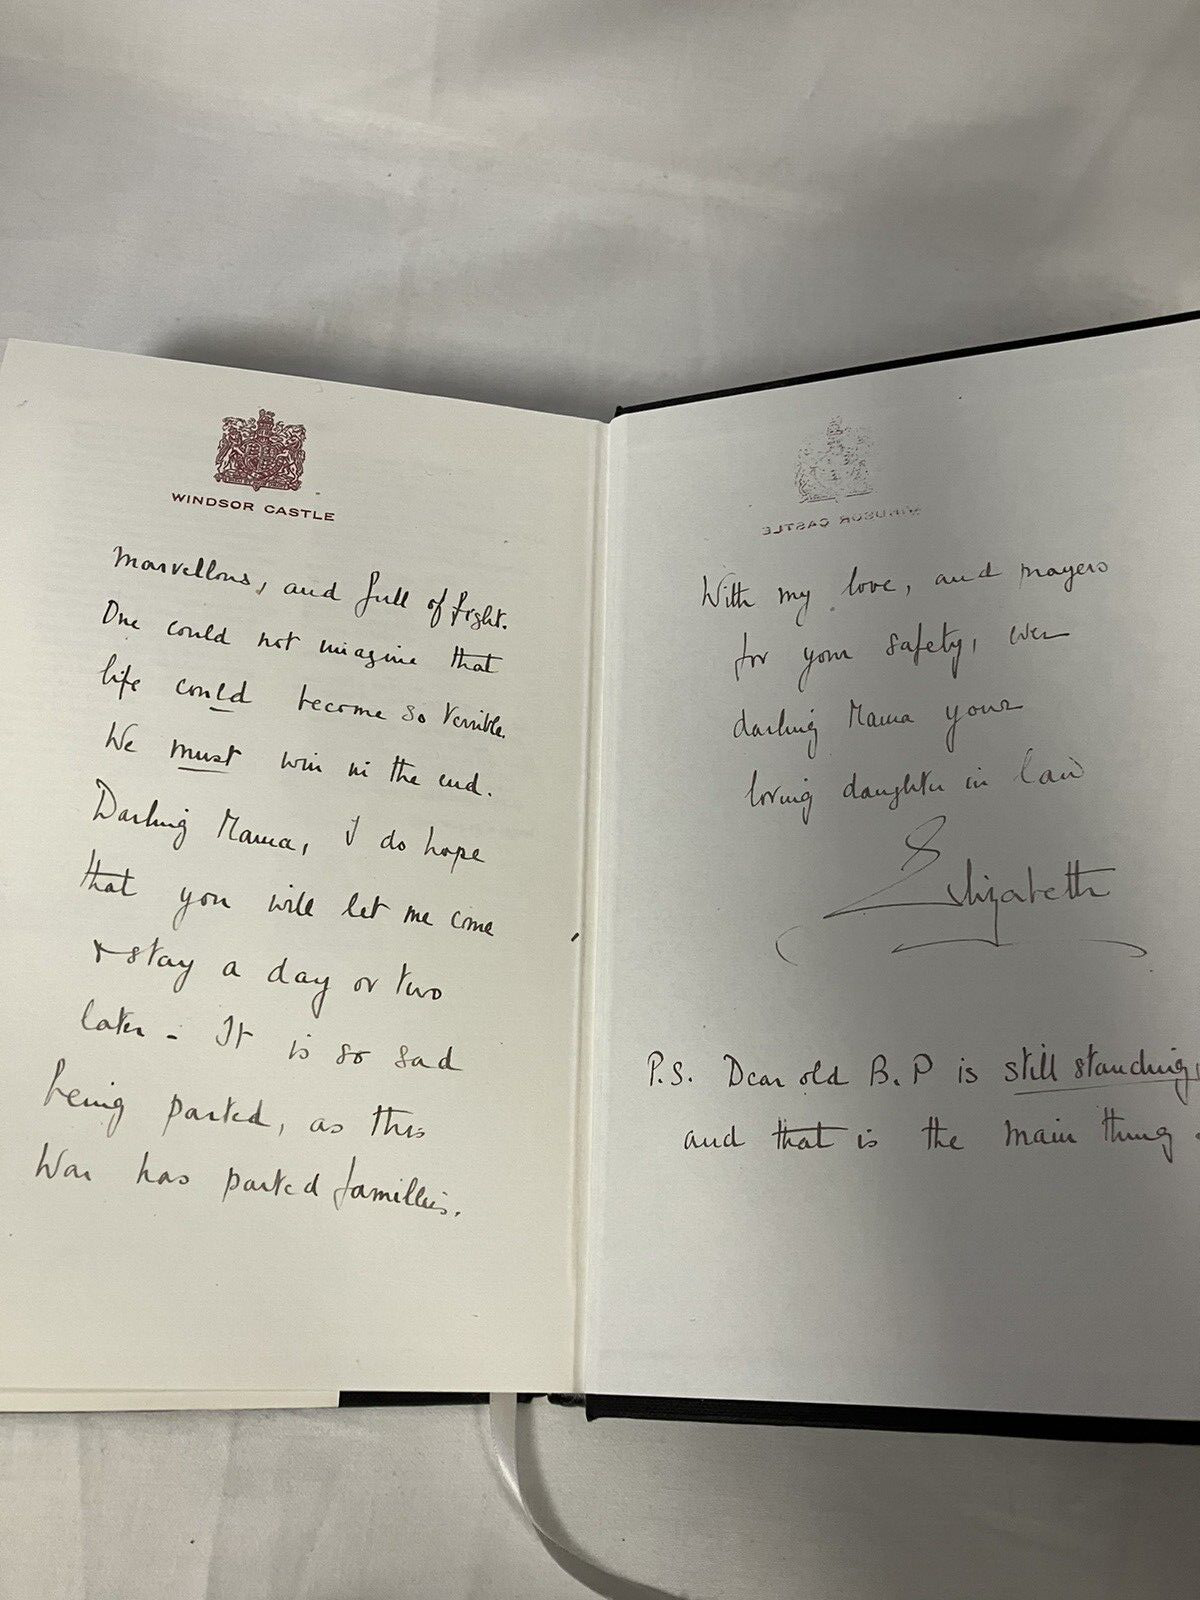 WINDSOR CASTLE
Marvellous, and full of fight.
One could not imagine that
life could become so terrible.
We must win in the end.
Darling Mama, I do hope
that you will let me come
& stay a day or two
later - It is so sad
being parted, as this
War has parted families.
WINDSOR CASTLE
With my love, and prayers
for your safety, ever
darling Mama your
loving daughter in law
Elizabeth
P.S. Dear old B.P is still standing,
and that is the main thing.